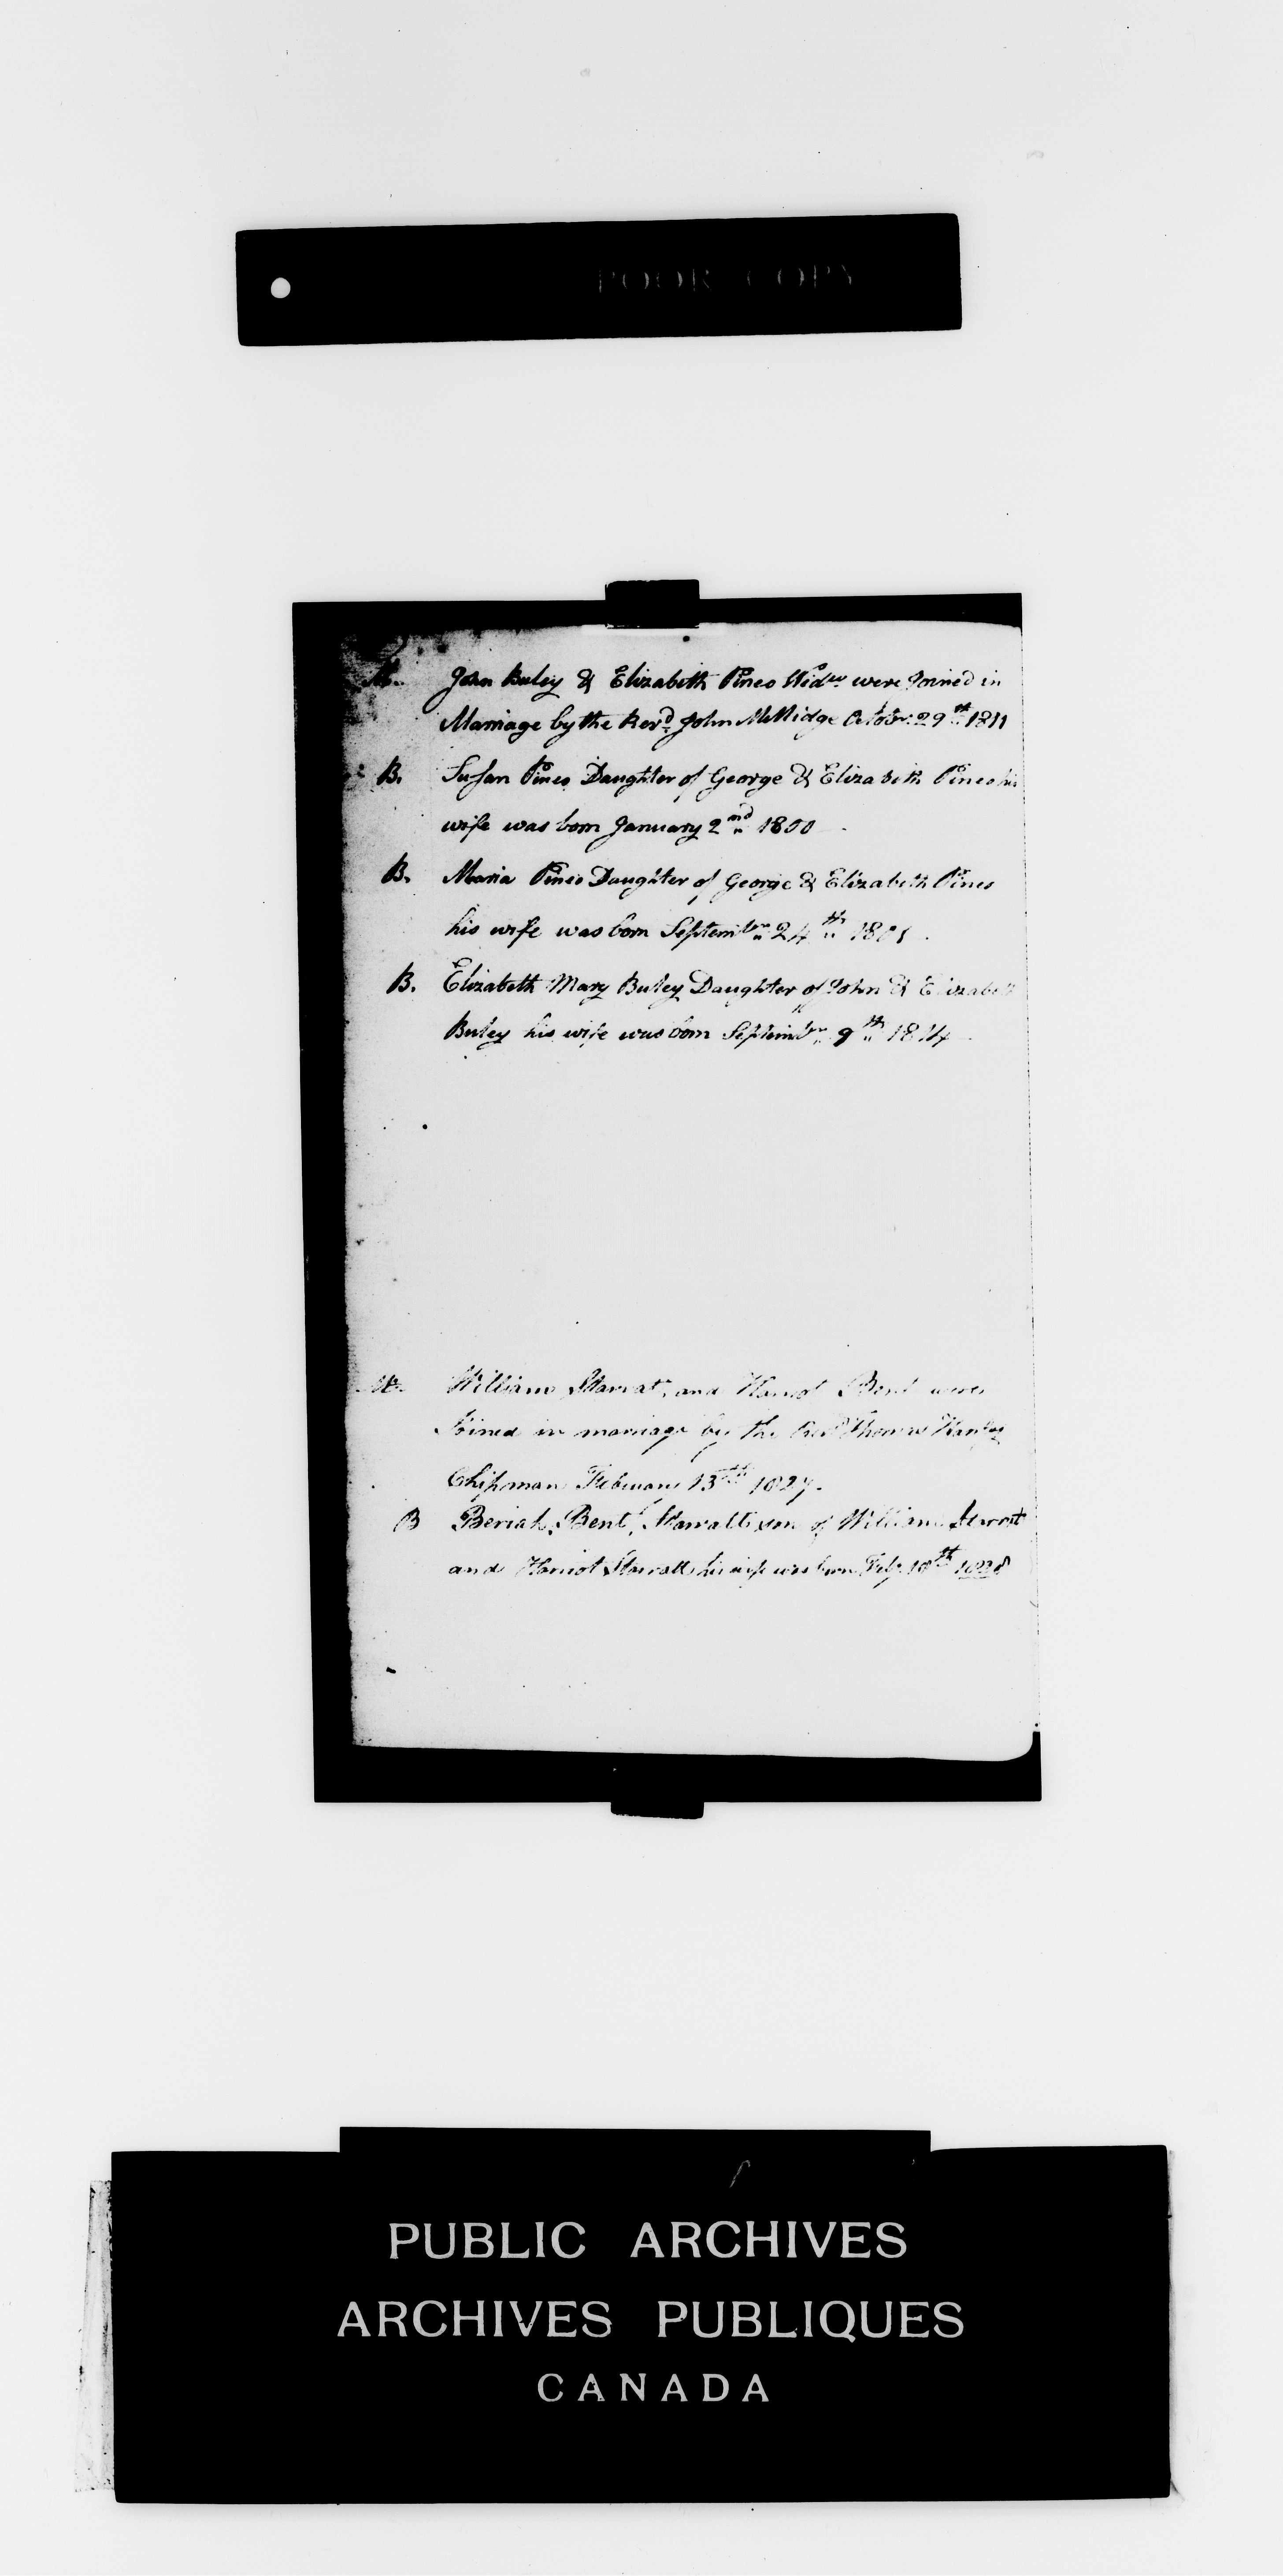 POOR COPY
M. John Buley & Elizabeth Pineo Widw were Joined in
Marriage by the Revd John Millidge Octobr 29th 1811
B. Susan Pineo Daughter of George & Elizabeth Pineo his
wife was born January 2nd 1800
B. Maria Pineo Daughter of George & Elizabeth Pineo
his wife was born Septembr 24th 1801
B. Elizabeth Mary Buley Daughter of John & Elizabeth
Buley his wife was born Septembr 9th 1814
M. William Starratt and Harriot Bent were
Joined in marriage by the Revd Thomas Handley
Chipman February 13th 1827.
B Beriah Bent Starratt son of William Starratt
and Harriot Starratt his wife was born Feby 18th 1828
PUBLIC ARCHIVES
ARCHIVES PUBLIQUES
CANADA